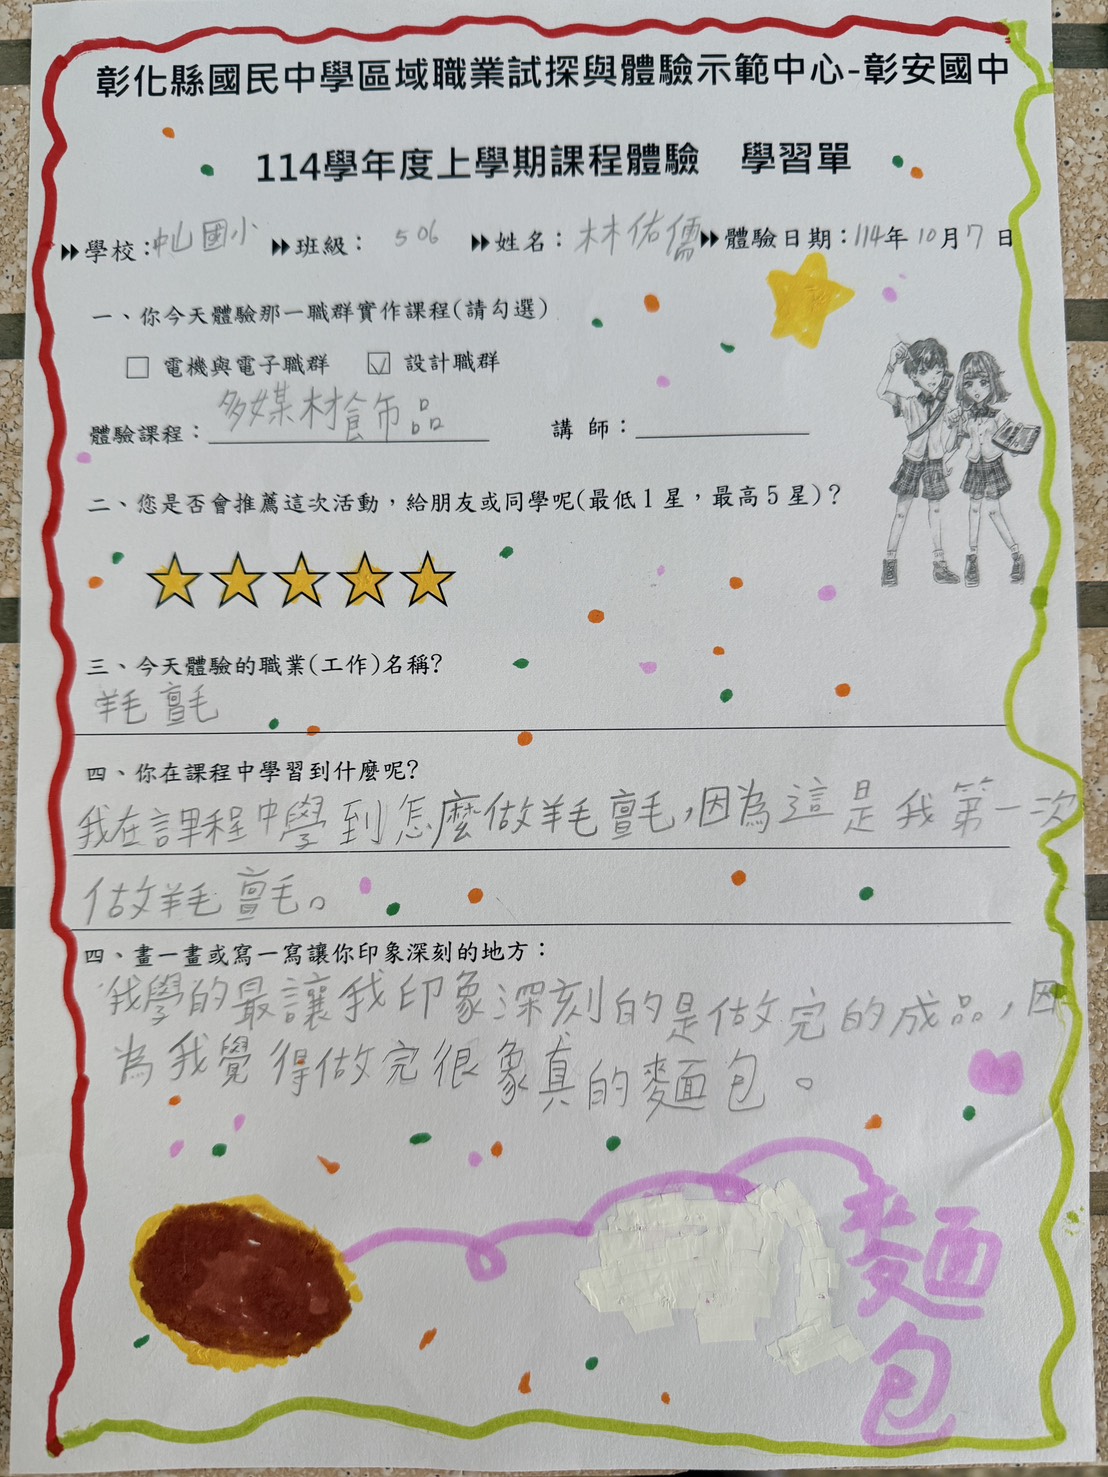 彰化縣國民中學區域職業試探與體驗示範中心-彰安國中
114學年度上學期課程體驗 學習單
學校：中山國小 班級： 506 姓名： 林佑儒 體驗日期：114年10月7日
一、你今天體驗那一職群實作課程(請勾選)
□ 電機與電子職群 ☑ 設計職群
體驗課程：多媒材飾品 講 師：
二、您是否會推薦這次活動，給朋友或同學呢(最低1星，最高5星)？
三、今天體驗的職業(工作)名稱?
羊毛氈
四、你在課程中學習到什麼呢?
我在課程中學到怎麼做羊毛氈，因為這是我第一次
做羊毛氈。
四、畫一畫或寫一寫讓你印象深刻的地方：
我學的最讓我印象深刻的是做完的成品，因
為我覺得做完很象真的麵包。
麵
包